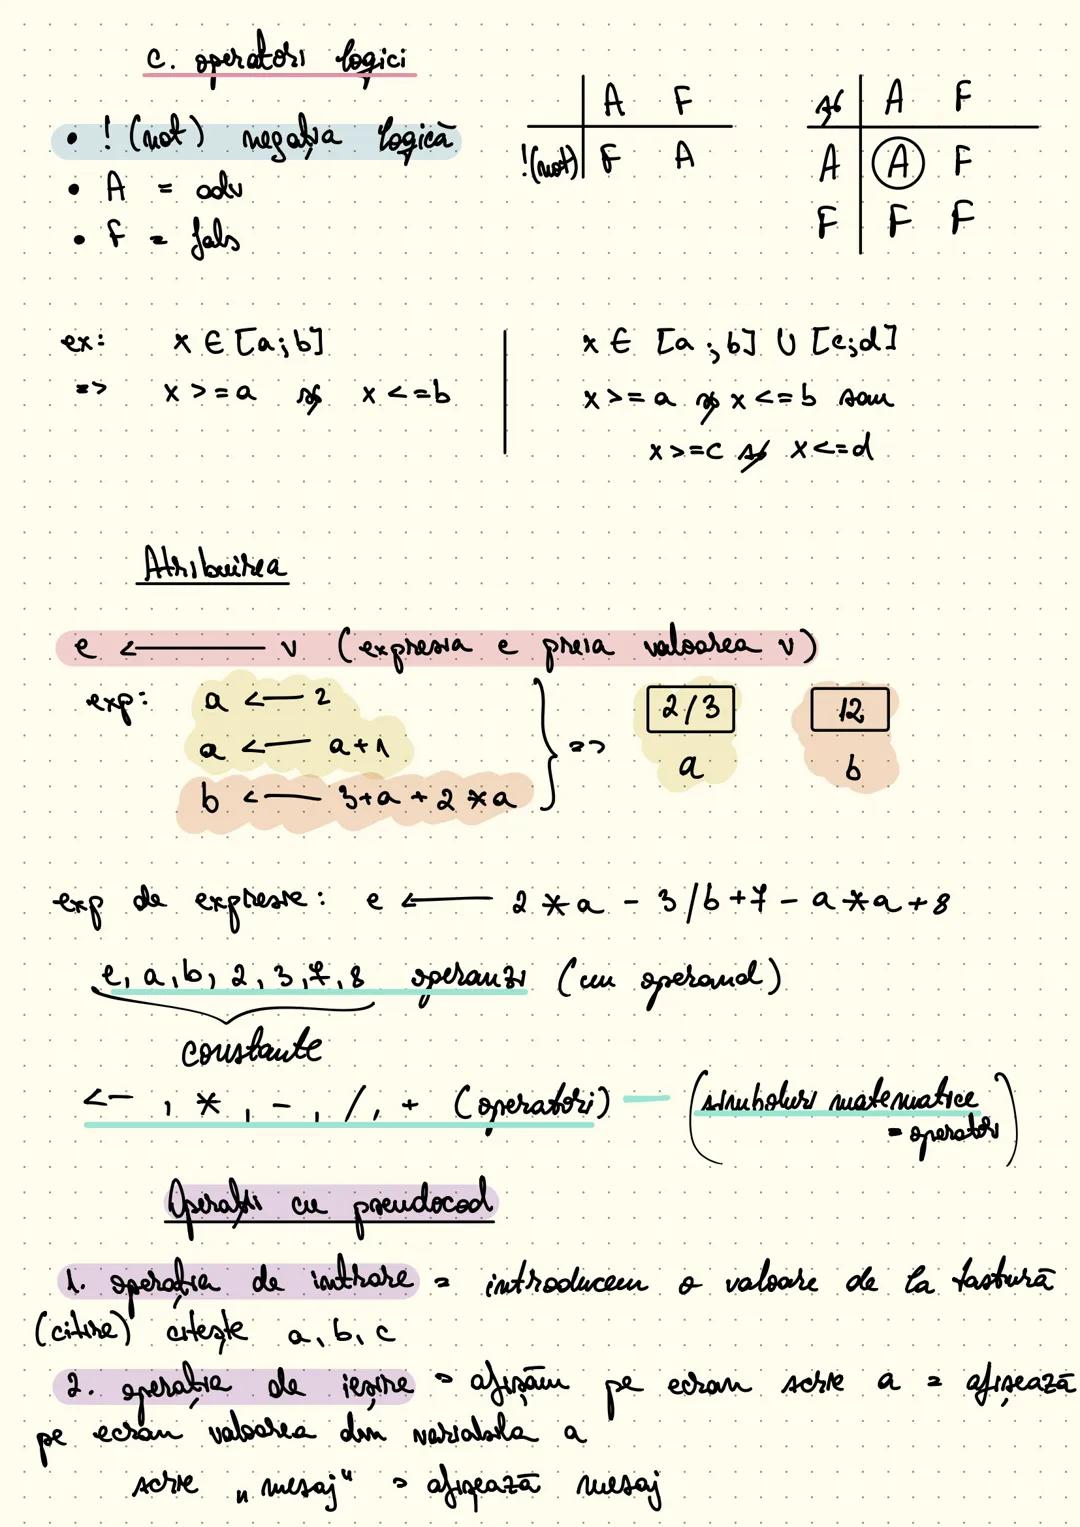 c. operatori logici
• ! (not) negația logică
• A = adv
• F = fals
A F
!(not) F A
și A F
A A F
F F F
ex: x ∈ [a;b]
=> x >= a și x <= b
x ∈ [a;b] ∪ [c;d]
x >= a și x <= b sau
x >= c și x <= d
Atribuirea
e <— v (expresia e preia valoarea v)
exp: a <— 2
a <— a+1
b <— 3+a+2*a
=>
2/3 12
a b
exp de expresie: e <— 2*a - 3/b+7 - a*a+8
e, a, b, 2, 3, 7, 8 operanzi (un operand)
constante
<—, *, -, /, + (operatori) — (simboluri matematice
= operatori)
Operații cu pseudocod
1. operația de intrare = introducem o valoare de la tastură
(citire) citește a, b, c
2. operația de ieșire = afișăm pe ecran scrie a = afisează
pe ecran valoarea din variabila a
scrie „mesaj" = afișează mesaj